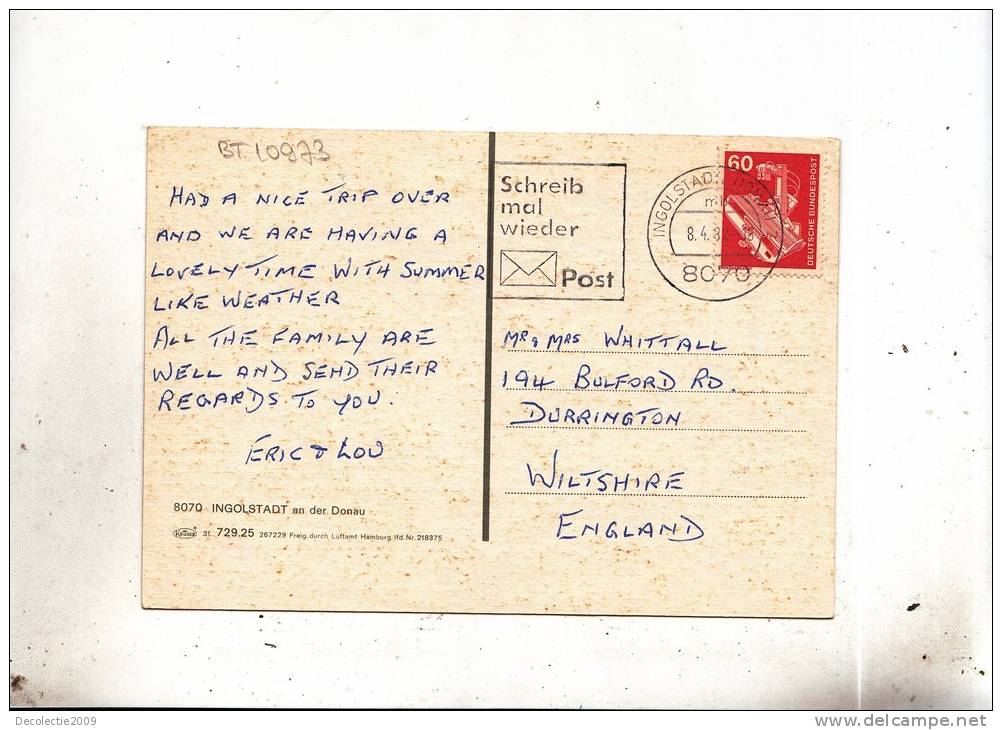 BT 10973
HAD A NICE TRIP OVER
AND WE ARE HAVING A
LOVELY TIME WITH SUMMER
LIKE WEATHER
ALL THE FAMILY ARE
WELL AND SEND THEIR
REGARDS TO YOU.
ERIC & LOU
8070 INGOLSTADT an der Donau
Krüger 31 729.25 267229 Freig. durch Luftamt Hamburg lfd. Nr. 218375
Schreib
mal
wieder
Post
INGOLSTADT
8.4.8
8070
60
DEUTSCHE BUNDESPOST
MR & MRS WHITTALL
194 BULFORD RD.
DURRINGTON
WILTSHIRE
ENGLAND
Decolectie2009
www.delcampe.net